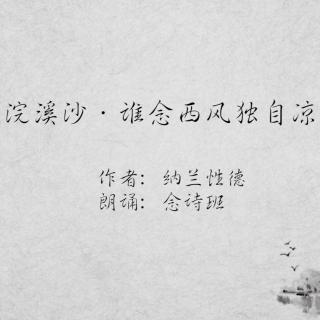 浣溪沙·谁念西风独自凉
作者：纳兰性德
朗诵：念诗班